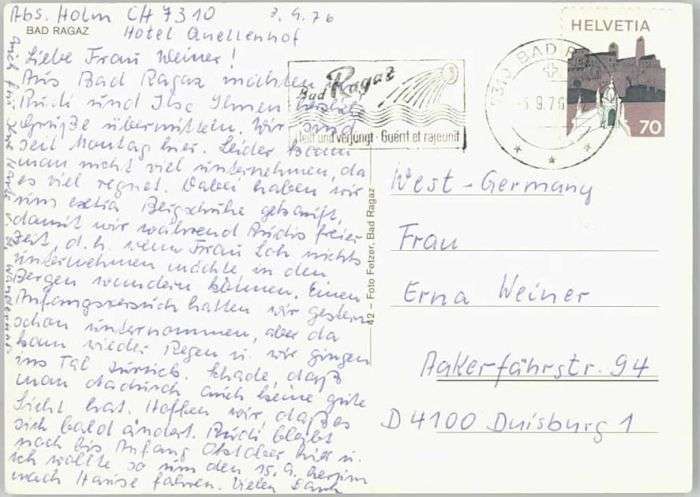 Abs. Holm CH 7310 3.9.76
BAD RAGAZ Hotel Quellenhof
Liebe Frau Weiner!
Aus Bad Ragaz möchten
Rudi und Ilse Ihnen herzliche
Grüße übermitteln. Wir sind
seit Montag hier. Leider kann
man nicht viel unternehmen, da
es viel regnet. Dabei haben wir
uns extra Bergschuhe gekauft,
damit wir während Rudis freier
Zeit, d.h. wenn Frau Loh nichts
unternehmen möchte in den
Bergen wandern können. Einen
Anfangsversuch hatten wir gestern
schon unternommen, aber da
kam wieder Regen u. wir gingen
ins Tal zurück. Schade, daß
man dadurch auch keine gute
Sicht hat. Hoffen wir, daß es
sich bald ändert. Rudi bleibt
noch bis Anfang Oktober hier u.
ich wollte so um den 15.9. herum
nach Hause fahren. Vielen Dank
auch für
42 – Foto Fetzer, Bad Ragaz
Bad Ragaz
heilt und verjüngt · Guérit et rajeunit
7310 BAD RAGAZ
-3.9.76
HELVETIA
70
West-Germany
Frau
Erna Weiner
Aakerfährstr. 94
D 4100 Duisburg 1